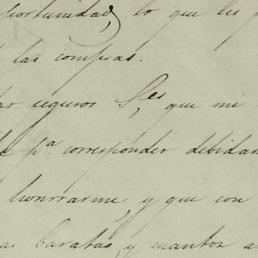 oportunidad, lo que les p
las compras.
ar seguros S.es que mi
pa corresponder debidam
honrarme, y que con
as baratas, y cuantos a